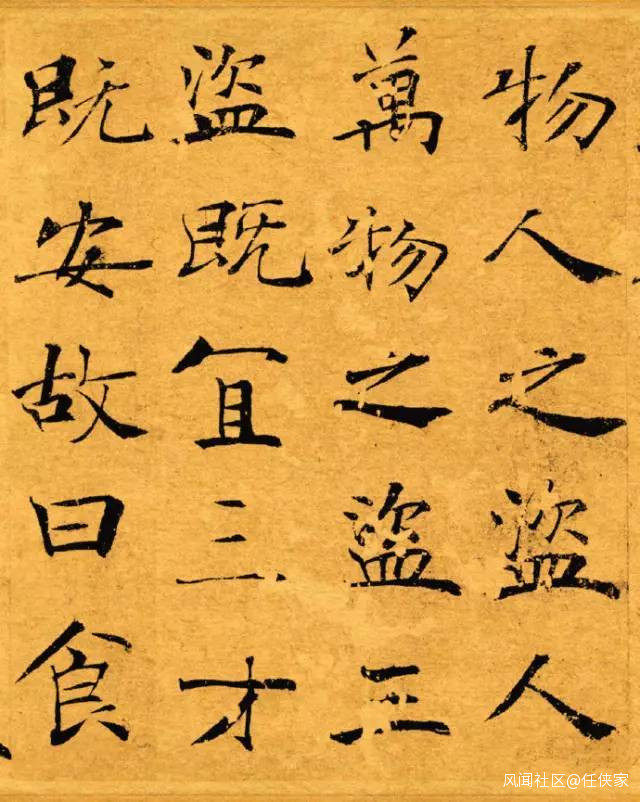 物人之盜人
萬物之盜三
盜既宜三才
既安故曰食
风闻社区@任侠家